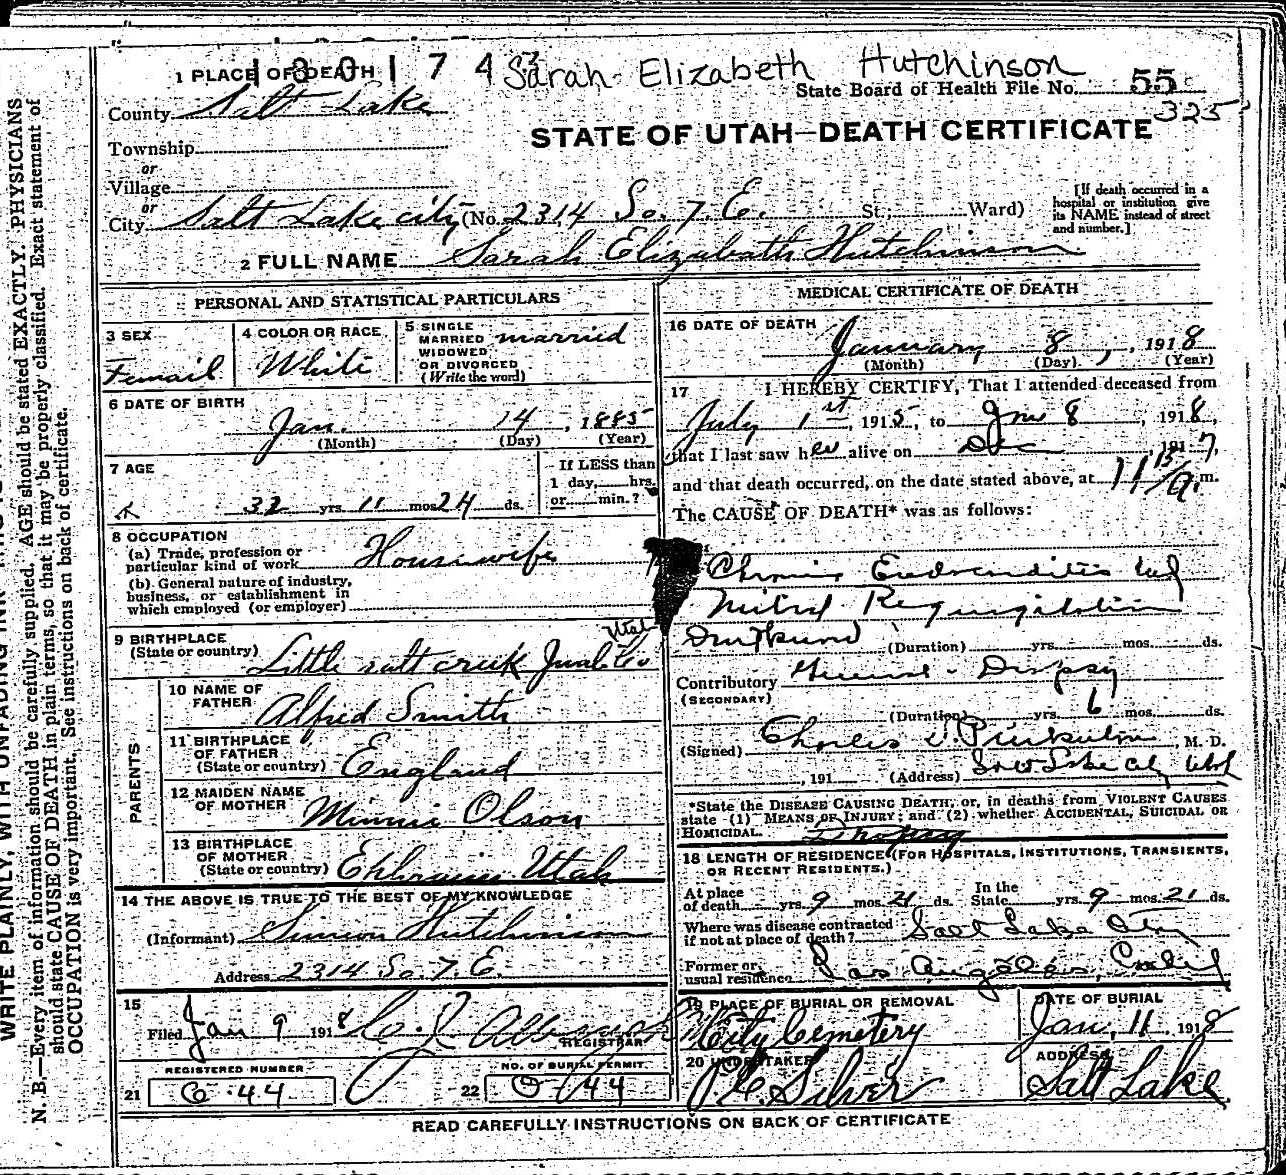 1301743 Sarah Elizabeth Hutchinson
1 PLACE OF DEATH
State Board of Health File No. 55
325
County Salt Lake
STATE OF UTAH—DEATH CERTIFICATE
Township
or
Village
or
City Salt Lake city (No. 2314 So. 7. E. St.; Ward)
[If death occurred in a
hospital or institution give
its NAME instead of street
and number.]
2 FULL NAME Sarah Elizabath Hutchinson
PERSONAL AND STATISTICAL PARTICULARS
3 SEX
Femail
4 COLOR OR RACE
White
5 SINGLE
MARRIED
WIDOWED
OR DIVORCED
(Write the word)
married
6 DATE OF BIRTH
Jan. 14, 1885
(Month) (Day) (Year)
7 AGE
32 yrs. 11 mos 24 ds.
If LESS than
1 day, hrs.
or min.?
8 OCCUPATION
(a) Trade, profession or
particular kind of work Housewife
(b) General nature of industry,
business, or establishment in
which employed (or employer)
9 BIRTHPLACE
(State or country) Little salt creek Juab Co Utah
PARENTS
10 NAME OF
FATHER
Alfred Smith
11 BIRTHPLACE
OF FATHER
(State or country) England
12 MAIDEN NAME
OF MOTHER Minnie Olson
13 BIRTHPLACE
OF MOTHER
(State or country) Ephraim Utah
14 THE ABOVE IS TRUE TO THE BEST OF MY KNOWLEDGE
(Informant) Simeon Hutchinson
Address 2314 So. 7. E.
15
Filed Jan 9 1918
REGISTRAR
REGISTERED NUMBER
21 C-44
NO. OF BURIAL PERMIT
22 O-144
MEDICAL CERTIFICATE OF DEATH
16 DATE OF DEATH
January 8, 1918
(Month) (Day) (Year)
17 I HEREBY CERTIFY, That I attended deceased from
July 1st, 1915, to Jan 8, 1918,
that I last saw her alive on Dec, 1917,
and that death occurred, on the date stated above, at 11 15/a. m.
The CAUSE OF DEATH* was as follows:
Chronic Endocarditis
Mitral Regurgitation
(Duration) yrs. mos. ds.
Contributory General Dropsy
(SECONDARY)
(Duration) yrs. 6 mos. ds.
(Signed) Charles M. D.
, 191 (Address) Salt Lake City Utah
*State the DISEASE CAUSING DEATH, or, in deaths from VIOLENT CAUSES
state (1) MEANS OF INJURY; and (2) whether ACCIDENTAL, SUICIDAL OR
HOMICIDAL. Dropsy
18 LENGTH OF RESIDENCE (FOR HOSPITALS, INSTITUTIONS, TRANSIENTS,
OR RECENT RESIDENTS.)
At place
of death yrs. 9 mos. 21 ds.
In the
State yrs. 9 mos. 21 ds.
Where was disease contracted
if not at place of death? Salt Lake City
Former or
usual residence Los Angeles, Calif
19 PLACE OF BURIAL OR REMOVAL
City Cemetery
DATE OF BURIAL
Jan. 11, 1918
20 UNDERTAKER
Silver
ADDRESS
Salt Lake
READ CAREFULLY INSTRUCTIONS ON BACK OF CERTIFICATE
N. B.—Every item of information should be carefully supplied. AGE should be stated EXACTLY. PHYSICIANS
should state CAUSE OF DEATH in plain terms, so that it may be properly classified. Exact statement of
OCCUPATION is very important. See instructions on back of certificate.